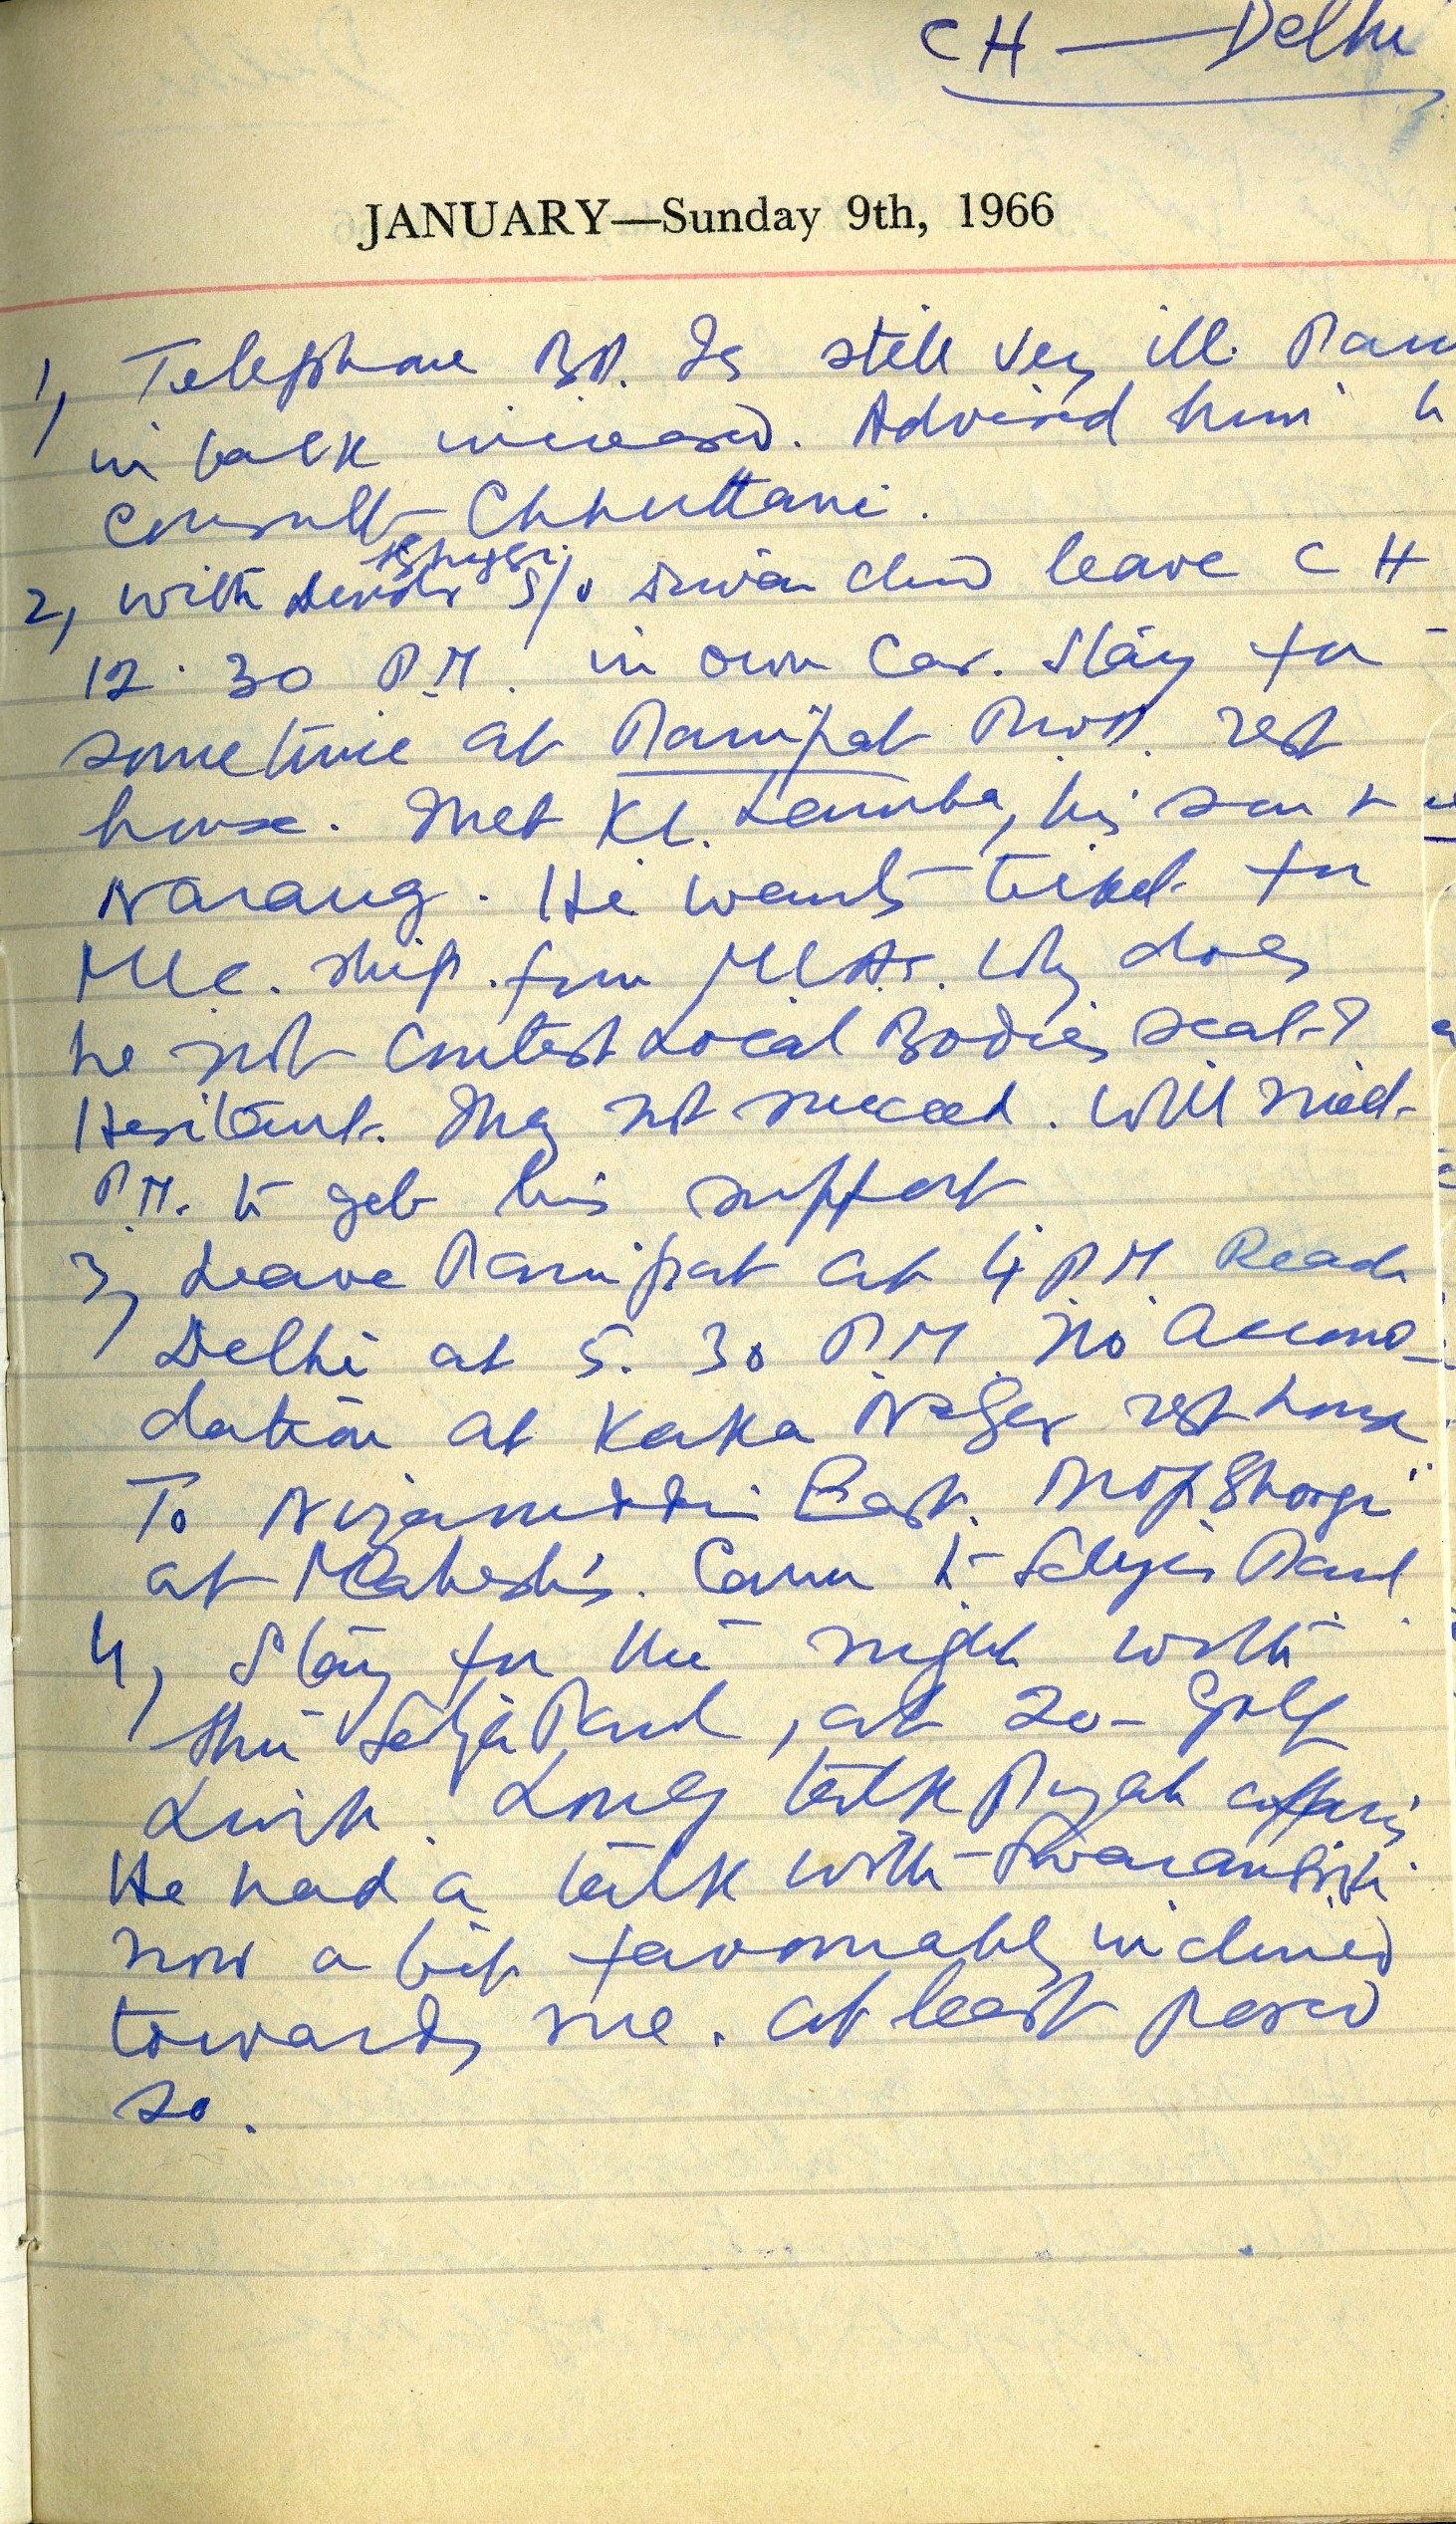 CH — Delhi
JANUARY—Sunday 9th, 1966
1, Telephone BD. Is still very ill. Pain
in back increased. Advised him to
consult Chhuttani.
2, With S/o leave CH
12.30 P.M. in own Car. Stay for
sometime at Panipat rest
house. Met KL. Lamba, his son &
Narang. He wants ticket for
MLC. ship. from MLAs. Why does
he not contest Local Bodies seat?
Hesitant. May not succeed. Will
P.M. to get his support
3, Leave Panipat at 4 P.M. Reach
Delhi at 5.30 P.M. No accomo-
dation at Kaka Nagar rest house
To Nizamuddin East.
at Mahesh's. Came to Paul.
4, Stay for the night with
Shri Paul, at 20- Golf
Link. Long talk affairs
He had a talk with Swaran
now a bit favourably inclined
towards me. at least posed
so.